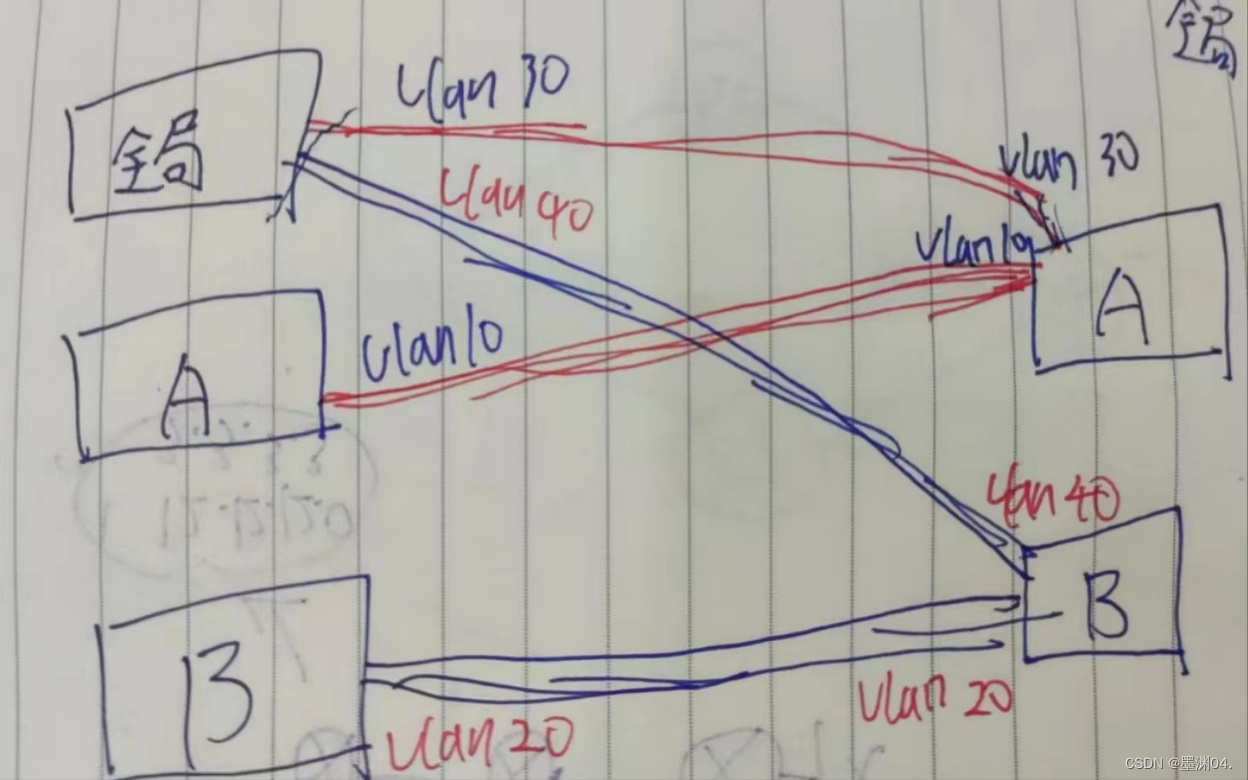 全局
vlan 30
全局
vlan 30
vlan 40
vlan 10
vlan 10
A
A
vlan 40
B
B
vlan 20
vlan 20
CSDN @墨渊04.